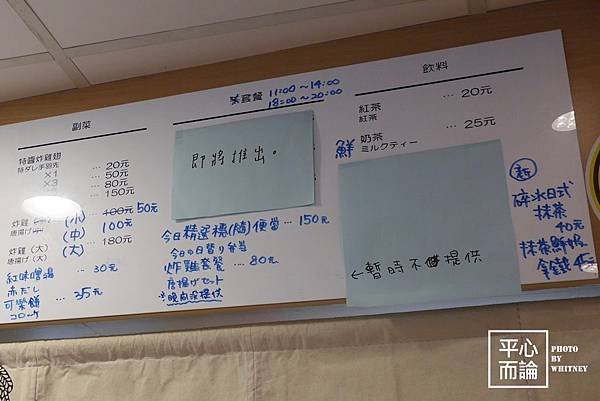 副菜
特醬炸雞翅
特ダレ手羽先 ... 20元
×1 ... 50元
×3 ... 80元
... 150元
炸雞 (小) ... 100元 50元
唐揚げ (中) 100元
炸雞 (大) (大) ... 180元
唐揚げ (大)
紅味噌湯 ... 30元
赤だし
可樂餅 ... 35元
コロッケ
套餐 11:00～14:00
18:00～20:00
即將推出。
今日精選 (隨) 便當 ... 150元
今日の日替り弁当
炸雞套餐 ... 80元
唐揚げセット
※晚間沒提供
飲料
紅茶 ... 20元
紅茶
鮮 奶茶 ... 25元
ミルクティー
←暫時不提供
新
碎冰日式
抹茶
40元
抹茶鮮
45元
平心
而論
PHOTO
BY
WHITNEY